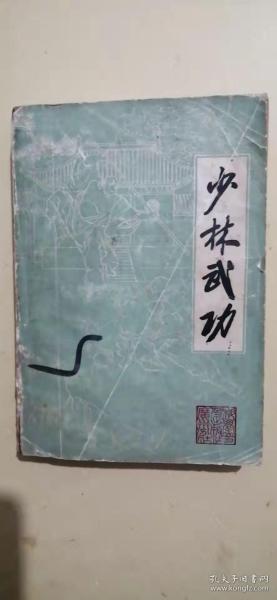 少林武功
孔夫子旧书网
kongfz.com